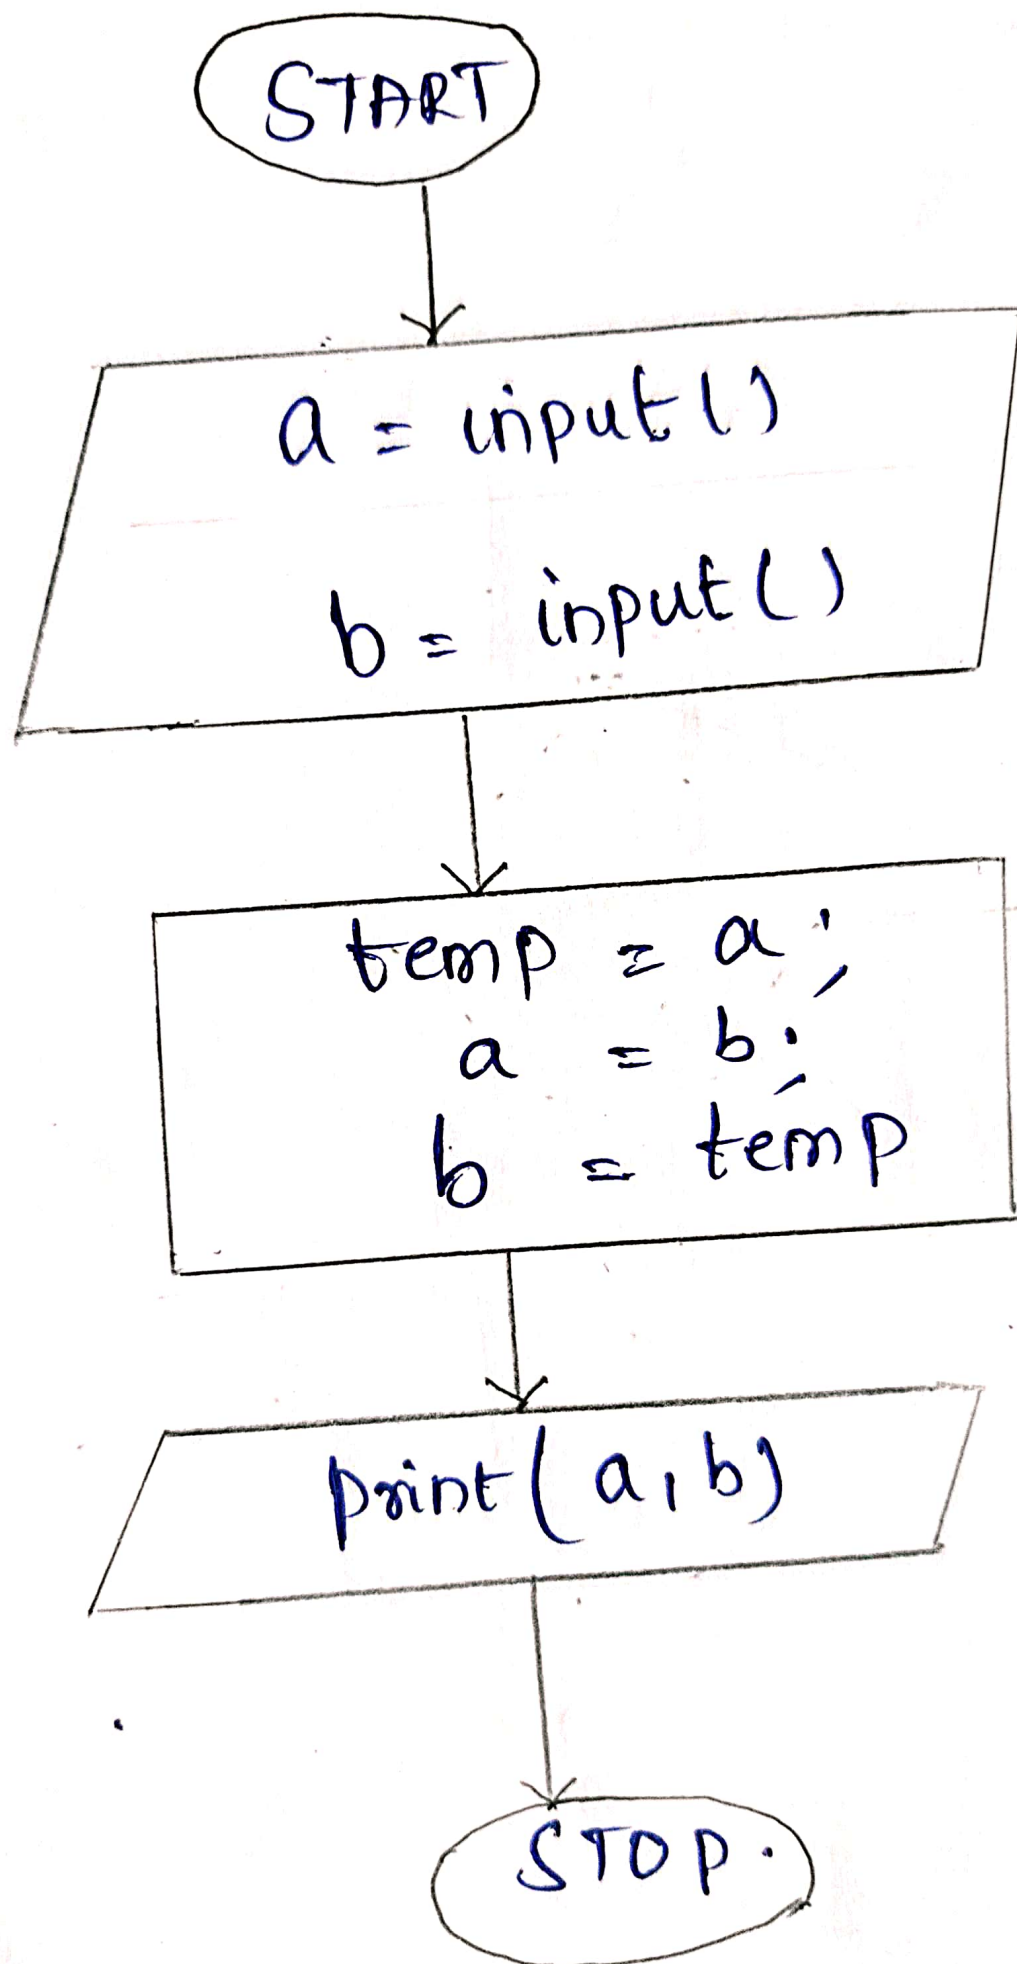 START
a = input()
b = input()
temp = a;
a = b;
b = temp
print(a,b)
STOP.